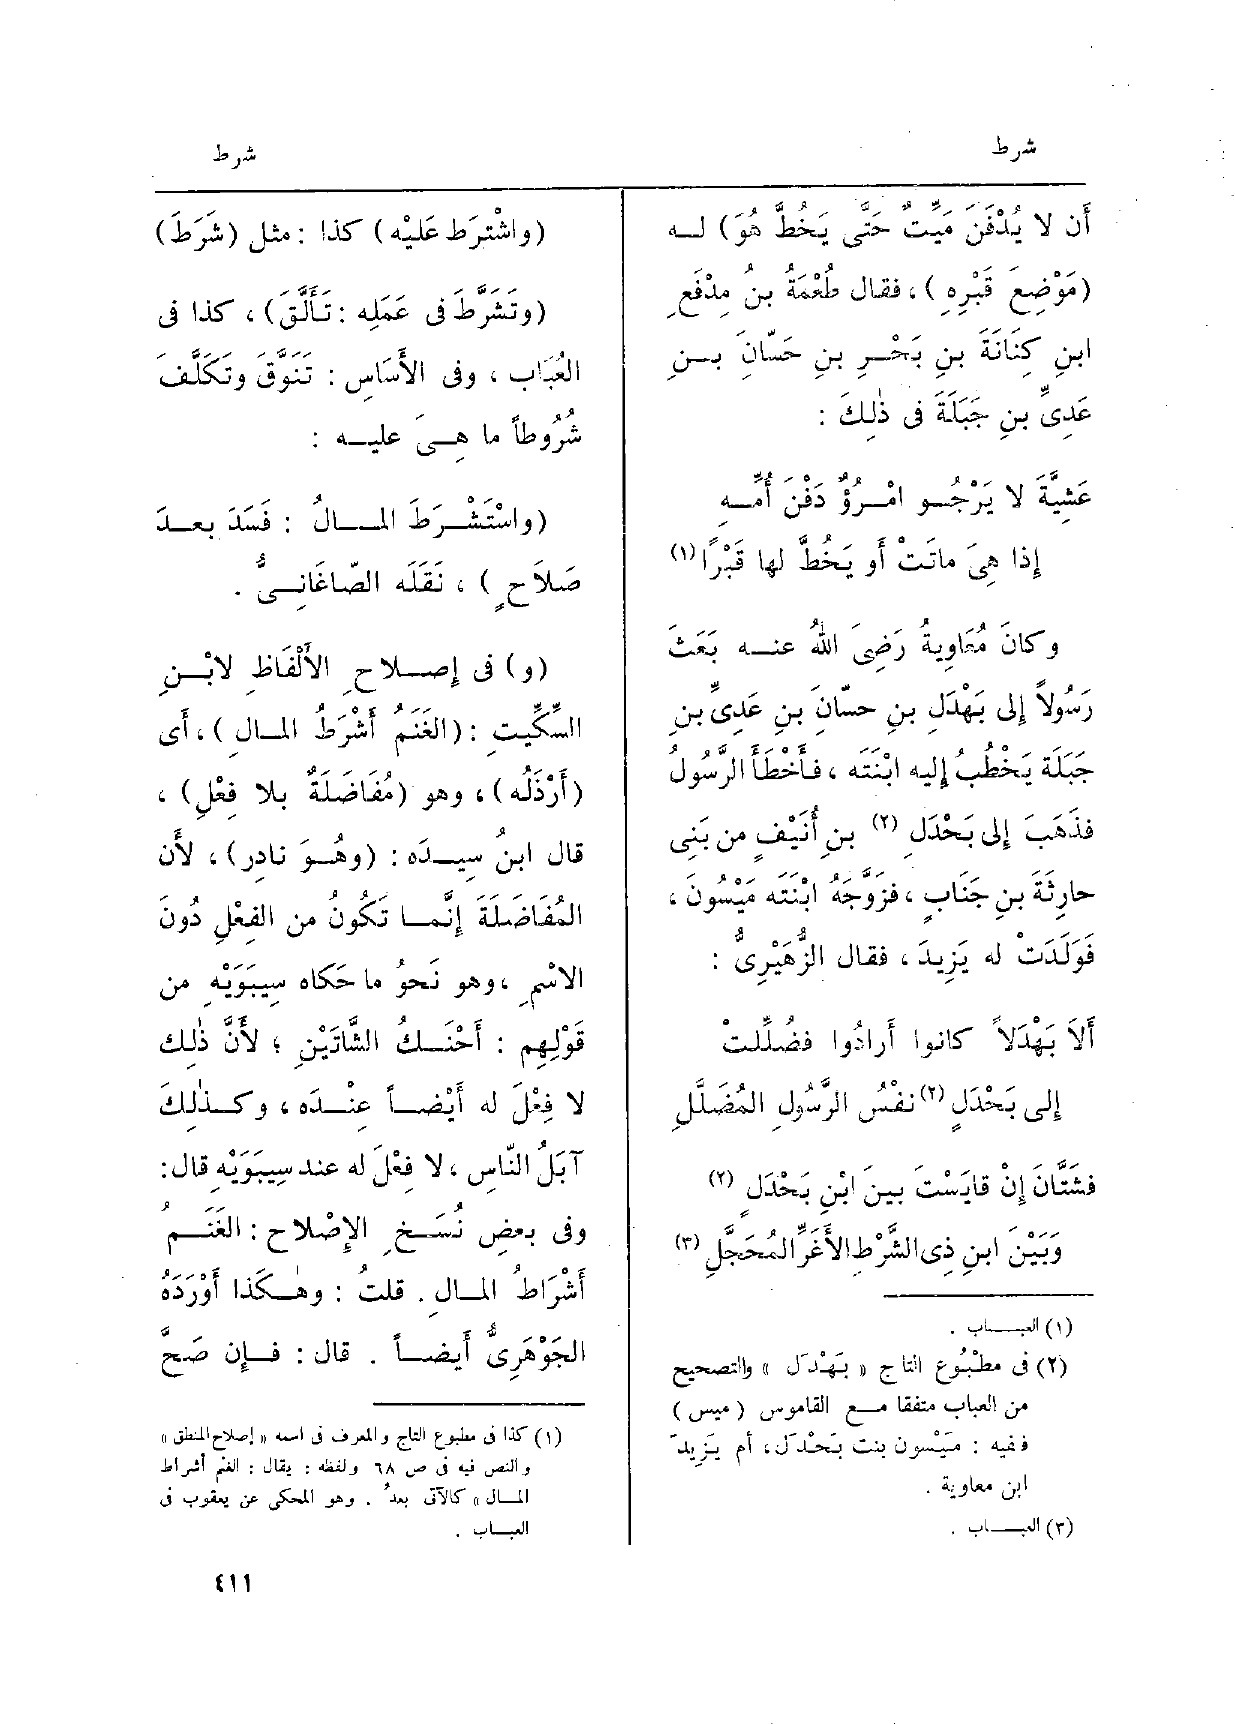 شرط
شرط
أن لا يُدْفَنَ مَيِّتٌ حَتَّى يَخُطَّ هُوَ ) لــه
(مَوْضِعَ قَبْرِهِ ) ، فقال طُعْمَةُ بنُ مِدْفَعِ
ابنِ كِنَانَةَ بنِ بَحْــرِ بنِ حَسّانَ بــنِ
عَدِيِّ بنِ جَبَلَةَ فى ذٰلِكَ :
عَشِيَّةَ لا يَرْجُــو امْــرُؤٌ دَفْنَ أُمِّــهِ
إذا هِىَ ماتَتْ أو يَخُطَّ لها قَبْرًا (١)
وكانَ مُعَاوِيةُ رَضِىَ اللهُ عنــه بَعَثَ
رَسُولاً إلى بَهْدَلِ بنِ حسّانَ بنِ عَدِىِّ بنِ
جَبَلَةَ يَخْطُبُ إليه ابْنَتَه ، فأَخطَأَ الرَّسُولُ
فذَهَبَ إلى بَحْدَلِ (٢) بنِ أُنَيْفٍ من بَنِى
حارِثَةَ بنِ جَنَابٍ ، فزَوَّجَهُ ابْنَتَه مَيْسُونَ ،
فَوَلَدَتْ له يَزِيدَ ، فقال الزُّهَيْرِىُّ :
أَلاَ بَهْدَلاً كانوا أَرادُوا فضُلِّلَتْ
إلى بَحْدَلٍ (٢) نفْسُ الرَّسُولِ المُضَلَّلِ
فشَتَّانَ إِنْ قايَسْتَ بينَ ابْنِ بَحْدَلٍ (٢)
وَبَيْنَ ابنِ ذِى الشَّرْطِ الأَغَرِّ المُحَجَّلِ (٣)
(١) العبــــاب .
(٢) فى مطْبُوع التاج « بَهْدَل » والتصحيح
من العباب متفقا مــع القاموس ( ميس )
ففيه : مَيْسون بنت بَحْدَل ، أم يَزِيدَ
ابن معاوية .
(٣) العبــــاب .
(واشْتَرَط عَلَيْه ) كذا : مثل (شَرَطَ )
(وتَشَرَّطَ فى عَمَلِه : تَأَنَّقَ ) ، كذا فى
العُبَابِ ، وفى الأَسَاسِ : تَنَوَّقَ وتَكَلَّفَ
شُرُوطاً ما هــىَ عليــه :
(واسْتَشْــرَطَ المــالُ : فَسَدَ بعــدَ
صَلَاحٍ ) ، نَقَلَه الصّاغَانِــىُّ .
(و) فى إصــلاحِ الأَلْفَاظِ لابْــنِ
السِّكِّيتِ : (الغَنَمُ أَشْرَطُ المــالِ ) ، أى
(أَرْذَلُه ) ، وهو (مُفَاضَلَةٌ بلا فِعْلٍ ) ،
قال ابنُ سِيــدَه : (وهُــوَ نادِر) ، لأَن
المُفَاضَلَةَ إنَّمــا تَكُونُ من الفِعْلِ دُونَ
الاسْمِ ، وهو نَحوُ ما حَكاه سِيبَوَيْهِ من
قَوْلِهِم : أَحْنَــكُ الشَّاتَيْنِ ؛ لأَنَّ ذٰلِك
لا فِعْلَ له أَيْضــاً عِنْــدَه ، وكــذٰلِكَ
آبَلُ النّاسِ ، لا فِعْلَ له عند سِيبَوَيْهِ قال:
وفى بعضِ نُسَــخِ الإِصْلاحِ : الغَنَــمُ
أَشْرَاطُ المــالِ . قلتُ : وهٰــكَذا أَوْرَدَهُ
الجَوْهَرِىُّ أَيضــاً . قال : فــإِن صَحَّ
(١) كذا فى مطبوع التاج والمعروف فى اسمه « إصلاح المنطق »
والنص فيه فى ص ٦٨ ولفظه : يقال : الغنم أشراط
المــال » كالآتى بعدُ . وهو المحكى عن يعقوب فى
العبــاب .
٤١١